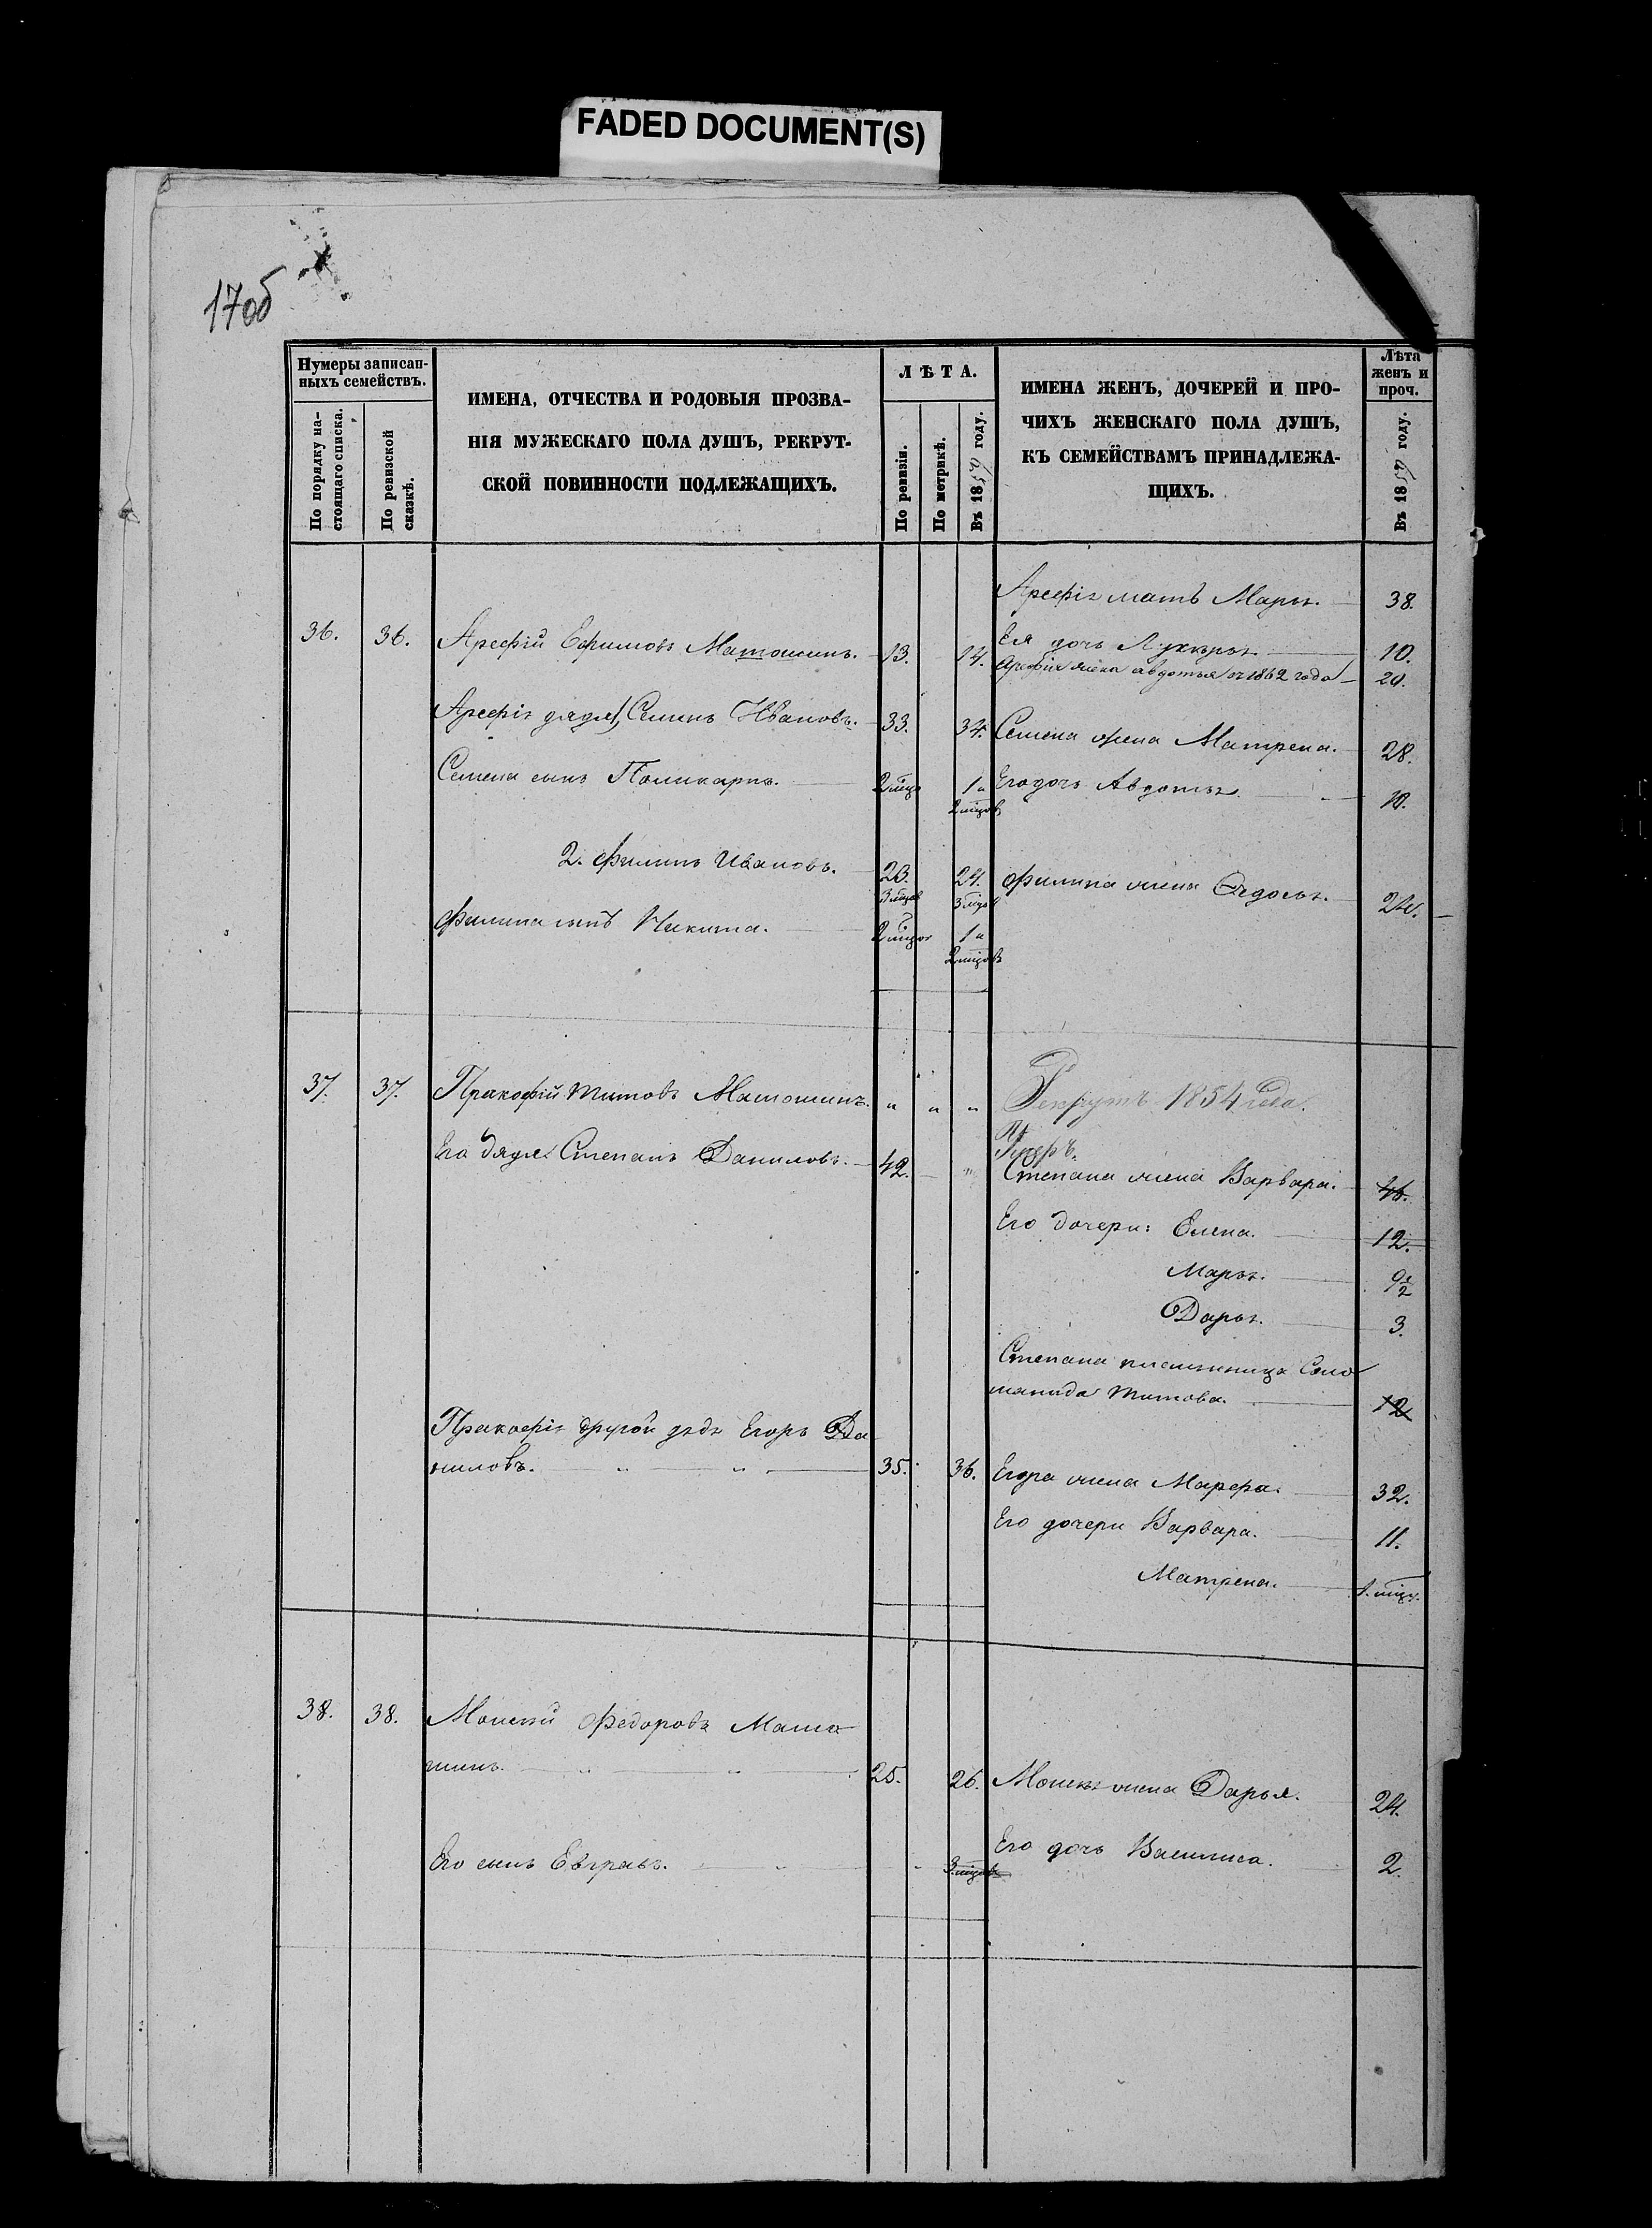 FADED DOCUMENT(S)
17об
Нумеры записан-
ныхъ семействъ.
По порядку на-
стоящаго списка.
По ревизской
сказкѣ.
ИМЕНА, ОТЧЕСТВА И РОДОВЫЯ ПРОЗВА-
НІЯ МУЖЕСКАГО ПОЛА ДУШЪ, РЕКРУТ-
СКОЙ ПОВИННОСТИ ПОДЛЕЖАЩИХЪ.
ЛѢТА.
По ревизіи.
По метрикѣ.
Въ 1859 году.
ИМЕНА ЖЕНЪ, ДОЧЕРЕЙ И ПРО-
ЧИХЪ ЖЕНСКАГО ПОЛА ДУШЪ,
КЪ СЕМЕЙСТВАМЪ ПРИНАДЛЕЖА-
ЩИХЪ.
Лѣта
женъ и
проч.
Въ 1859 году.
Арефія мать Марья. 38.
36. 36. Арефій Ефимовъ Матошинъ. 13. 14. Ея дочь Лукерья. 10.
Арефія жена Авдотья съ 1862 года 20.
Арефія дядя 1, Семенъ Ивановъ. 33. 34. Семена жена Матрена. 28.
Семена сынъ Поликарпъ. 2 мѣця 1 и Его дочь Авдотья. 10.
2 мѣцовъ
2. Филипъ Ивановъ. 23. 24. Филипа жена Федосья. 24.
3 мѣцов 3 мѣцов
Филипа сынъ Никита. 2 мѣця 1 и
2 мѣцовъ
37. 37. Пракофій Титовъ Матошинъ. " " " Рекрутъ 1854 года.
Умеръ.
Его дядя Степанъ Даниловъ. 42. " Степана жена Варвара. 46.
Его дочери: Елена. 12.
Марья. 9½
Дарья. 3.
Степана племяница Соло
манида Титова. 12
Пракофія другой дядя Егоръ Да
ниловъ. " " 35. 36. Егора жена Марфа. 32.
Его дочери Варвара. 11.
Матрена. 1. мѣця.
38. 38. Мокей Федоровъ Мато
шинъ. " " 25. 26. Мокея жена Дарья. 24.
Его сынъ Евграфъ. 3 мѣцовъ Его дочь Василиса. 2.